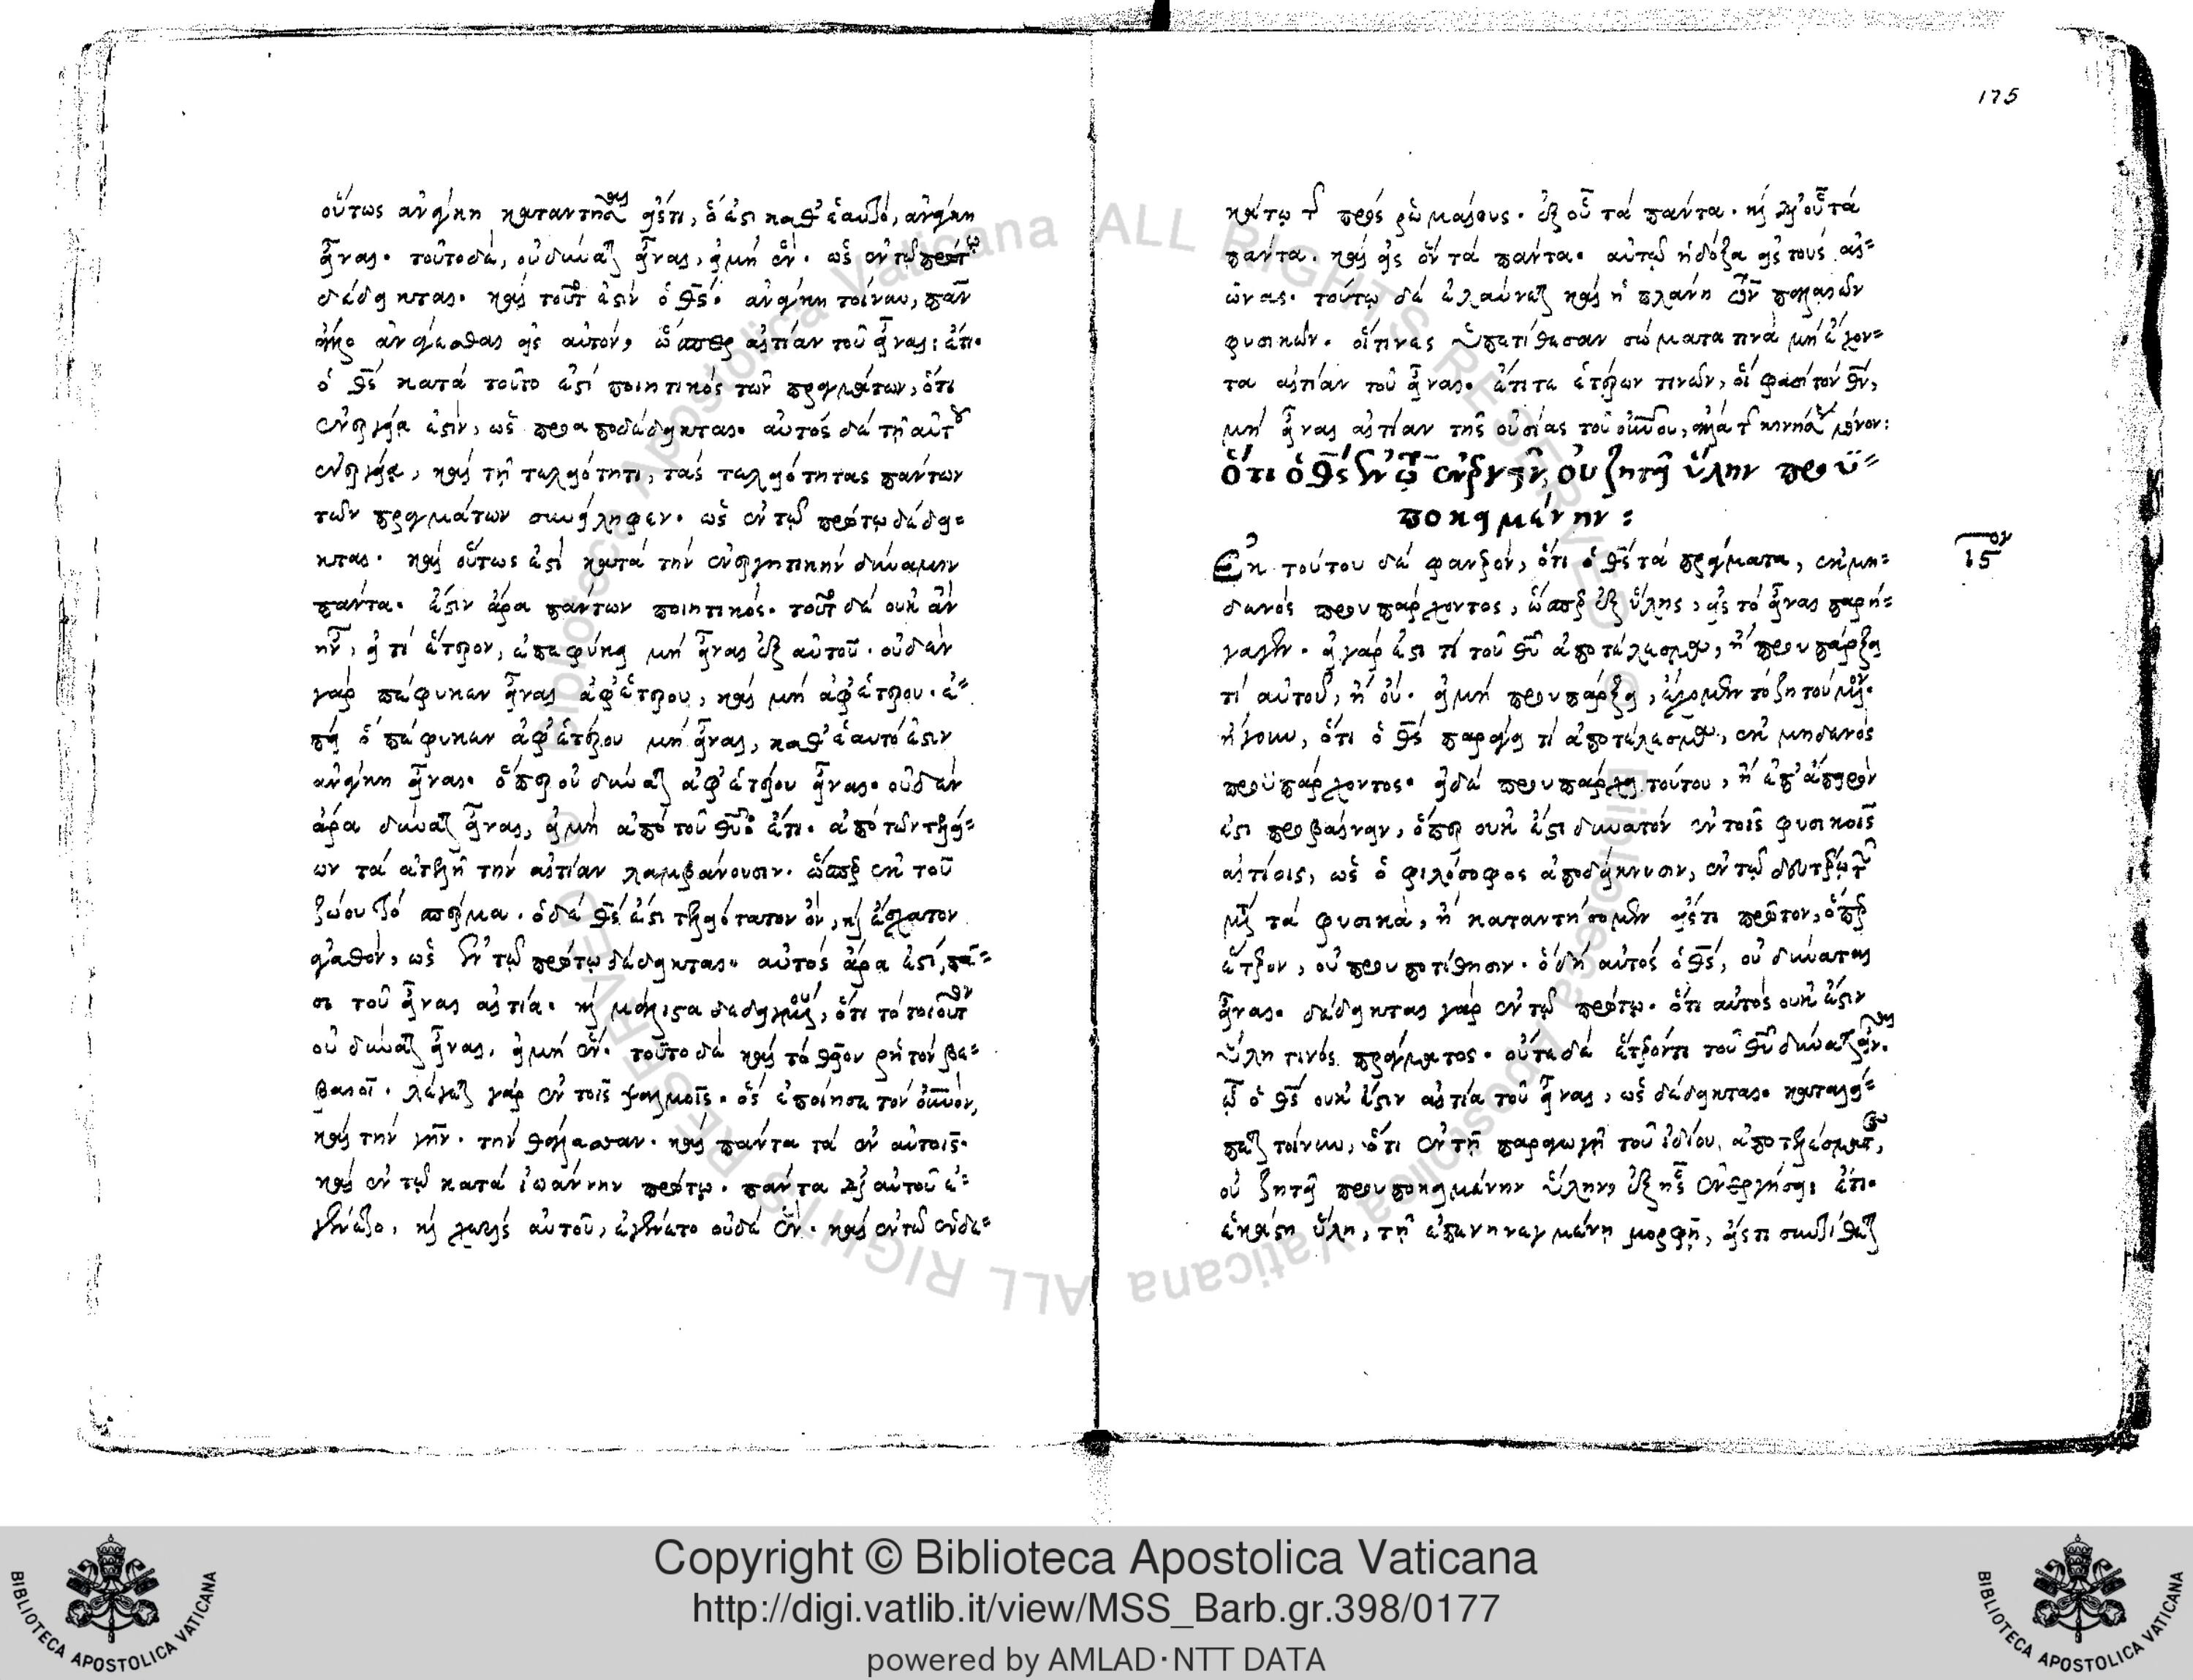 οὕτως ἀνάγκη καταντῆσαι εἰς ἔτι, ὅ ἐστι καθ' ἑαυτὸ, ἀνάγκη
εἶναι. τοῦτο δὲ, οὐ δύναται εἶναι, εἰ μὴ ἕν. ὡς ἐν τῷ πρώτῳ
δέδεικται. καὶ τοῦτό ἐστιν ὁ θς. ἀνάγκη τοίνυν, πᾶν
ἀνάγεσθαι εἰς αὐτὸν, ὥσπερ αἰτίαν τοῦ εἶναι: ἔτι.
ὁ θς κατὰ τοῦτο ἐστὶ ποιητικὸς τῶν πραγμάτων, ὅτι
ἐνεργείᾳ ἐστὶν, ὡς προαποδέδεικται. αὐτὸς δὲ τῇ αὐτοῦ
ἐνεργείᾳ, καὶ τῇ τελειότητι, τὰς τελειότητας πάντων
τῶν πραγμάτων συνείληφεν. ὡς ἐν τῷ πρώτῳ δέδει-
κται. καὶ οὕτως ἐστὶ κατὰ τὴν ἐνεργητικὴν δύναμιν
πάντα. ἔστιν ἄρα πάντων ποιητικός. τοῦτο δὲ οὐκ ἂν
ἦν, εἴ τι ἕτερον, ἐπεφύκει μὴ εἶναι ἐξ αὐτοῦ. οὐδὲν
γὰρ πέφυκεν εἶναι ἀφ' ἑτέρου, καὶ μὴ ἀφ' ἑτέρου. ἐ-
πεὶ ὃ πέφυκεν ἀφ' ἑτέρου μὴ εἶναι, καθ' ἑαυτό ἐστιν
ἀνάγκη εἶναι. ὅπερ οὐ δύναται ἀφ' ἑτέρου εἶναι. οὐδὲν
ἄρα δύναται εἶναι, εἰ μὴ ἀπὸ τοῦ θυ: ἔτι. ἀπὸ τῶν τελεί-
ων τὰ ἀτελῆ τὴν αἰτίαν λαμβάνουσιν. ὥσπερ ἐκ τοῦ
ζώου τὸ σπέρμα. ὁ δὲ θς ἐστὶ τελειότατον ὂν, καὶ ἔσχατον
ἀγαθὸν, ὡς ἐν τῷ πρώτῳ δέδεικται. αὐτὸς ἄρα ἐστὶ, πᾶ-
σι τοῦ εἶναι αἰτία. καὶ μάλιστα δεδειγμένου, ὅτι τὸ τοιοῦτον
οὐ δύναται εἶναι, εἰ μὴ ἕν. τοῦτο δὲ καὶ τὸ θεῖον ῥητὸν βε-
βαιοῖ. λέγεται γὰρ ἐν τοῖς ψαλμοῖς. ὃς ἐποίησε τὸν οὐνον,
καὶ τὴν γῆν. τὴν θάλασσαν. καὶ πάντα τὰ ἐν αὐτοῖς.
καὶ ἐν τῷ κατὰ ἰωάννην πρώτῳ. πάντα δι' αὐτοῦ ἐ-
γένετο, καὶ χωρὶς αὐτοῦ, ἐγένετο οὐδὲ ἕν. καὶ ἐν τῷ ἑνδε-
175
κάτῳ τῆς πρὸς ῥωμαίους. ἐξ οὗ τὰ πάντα. καὶ δι' οὗ τὰ
πάντα. καὶ εἰς ὃν τὰ πάντα. αὐτῷ ἡ δόξα εἰς τοὺς αἰ-
ῶνας. τούτῳ δὲ ἐλαύνεται καὶ ἡ πλάνη τῶν παλαιῶν
φυσικῶν. οἵτινες ὑπετίθεσαν σώματά τινα μὴ ἔχον-
τα αἰτίαν τοῦ εἶναι. ἔτι τε ἑτέρων τινῶν, οἵ φασι τὸν θν,
μὴ εἶναι αἰτίαν τῆς οὐσίας τοῦ οὐνου, ἀλλὰ τῆς κινήσεως μόνον:
ὅτι ὁ θς ἐν τῷ ἐνεργεῖν, οὐ ζητεῖ ὕλην προϋ-
ποκειμένην:
Ἐκ τούτου δὲ φανερὸν, ὅτι ὁ θς τὰ πράγματα, ἐκ μη-
δενὸς προυπάρχοντος, ὥσπερ ἐξ ὕλης, εἰς τὸ εἶναι παρή-
γαγεν. εἰ γάρ ἐστί τι τοῦ θυ ἀποτέλεσμα, ἢ προυπάρξει
τὶ αὐτοῦ, ἢ οὔ. εἰ μὴ προυπάρξει, ἔχομεν τὸ ζητούμενον.
ἤγουν, ὅτι ὁ θς παράγει τὶ ἀποτέλεσμα, ἐκ μηδενὸς
προϋπάρχοντος. εἰ δὲ προυπάρχει τούτου, ἢ ἐπ' ἄπειρόν
ἐστι προβαίνειν, ὅπερ οὐκ ἔστι δυνατὸν ἐν τοῖς φυσικοῖς
αἰτίοις, ὡς ὁ φιλόσοφος ἀποδείκνυσιν, ἐν τῷ δευτέρῳ τῶν
μετὰ τὰ φυσικὰ, ἢ καταντήσομεν εἰς ἔτι πρῶτον, ὅπερ
ἕτερον, οὐ προυποτίθησιν. ὃ δὴ αὐτὸς ὁ θς, οὐ δύναται
εἶναι. δέδεικται γὰρ ἐν τῷ πρώτῳ. ὅτι αὐτὸς οὐκ ἔστιν
ὕλη τινὸς πράγματος. οὔτε δὲ ἕτερόν τι τοῦ θυ δύναται εἶναι.
ᾧ ὁ θς οὐκ ἔστιν αἰτία τοῦ εἶναι, ὡς δέδεικται. καταλεί-
πεται τοίνυν, ὅτι ἐν τῇ παραγωγῇ τοῦ ἰδίου ἀποτελέσματος,
οὐ ζητεῖ προυποκειμένην ὕλην, ἐξ ἧς ἐνεργήσει: ἔτι.
ἑκάστη ὕλη, τῇ ἐπανηναγμένῃ μορφῇ, εἰς τι συντίθεται
15ον
Copyright © Biblioteca Apostolica Vaticana
http://digi.vatlib.it/view/MSS_Barb.gr.398/0177
powered by AMLAD·NTT DATA
BIBLIOTECA APOSTOLICA VATICANA
BIBLIOTECA APOSTOLICA VATICANA